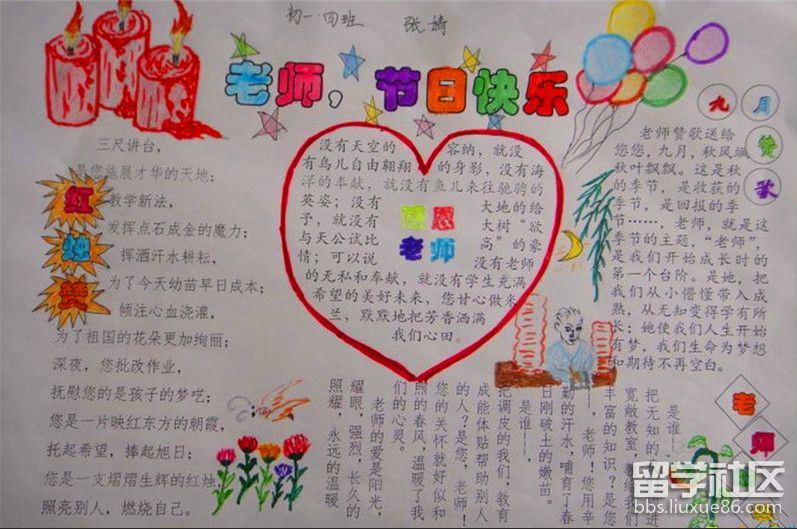 初一·四班 张婧
老师，节日快乐
红烛赞
三尺讲台，
是您施展才华的天地；
教学新法，
发挥点石成金的魔力；
挥洒汗水耕耘，
为了今天幼苗早日成本；
倾注心血浇灌，
为了祖国的花朵更加绚丽；
深夜，您批改作业，
抚慰您的是孩子的梦呓；
您是一片映红东方的朝霞，
托起希望，捧起旭日；
您是一支熠熠生辉的红烛，
照亮别人，燃烧自己。
感恩
老师
没有天空的容纳，就没
有鸟儿自由翱翔的身影，没有海
洋的奉献，就没有鱼儿来往驰骋的
英姿；没有大地的给
予，就没有大树“欲
与天公试比高”的豪
情；可以说没有老师
的无私和奉献，就没有学生充满
希望的美好未来，您甘心做米
兰，默默地把芳香洒满
我们心田。
九月赞歌
老师赞歌送给
您您，九月，秋风飒
秋叶飘飘。这是秋
的季节，是收获的
季节，是回报的季
节……，老师，就是这
季节的主题，“老师”，
是我们开始成长时的
第一个台阶。是她，把
我们从小懵懂带入成
熟，从无知变得学有所
长；她使我们人生开始
有梦，我们生命为梦想
和期待不再空白。
是谁—
把无知的
进
宽敞教室，
我们
丰富的知识？是您
—，老师！您用辛
勤的汗水，哺育了春
日刚破土的嫩苗。
是谁—，
把调皮的我们，教育
成能体贴帮助别人
的人？是您，老师！
您的关怀就好似和
煦的春风，温暖了我
们的心灵。
老师的爱是阳光，
耀眼，强烈，长久的
照耀，永远的温暖
老师
留学社区
bbs.liuxue86.com